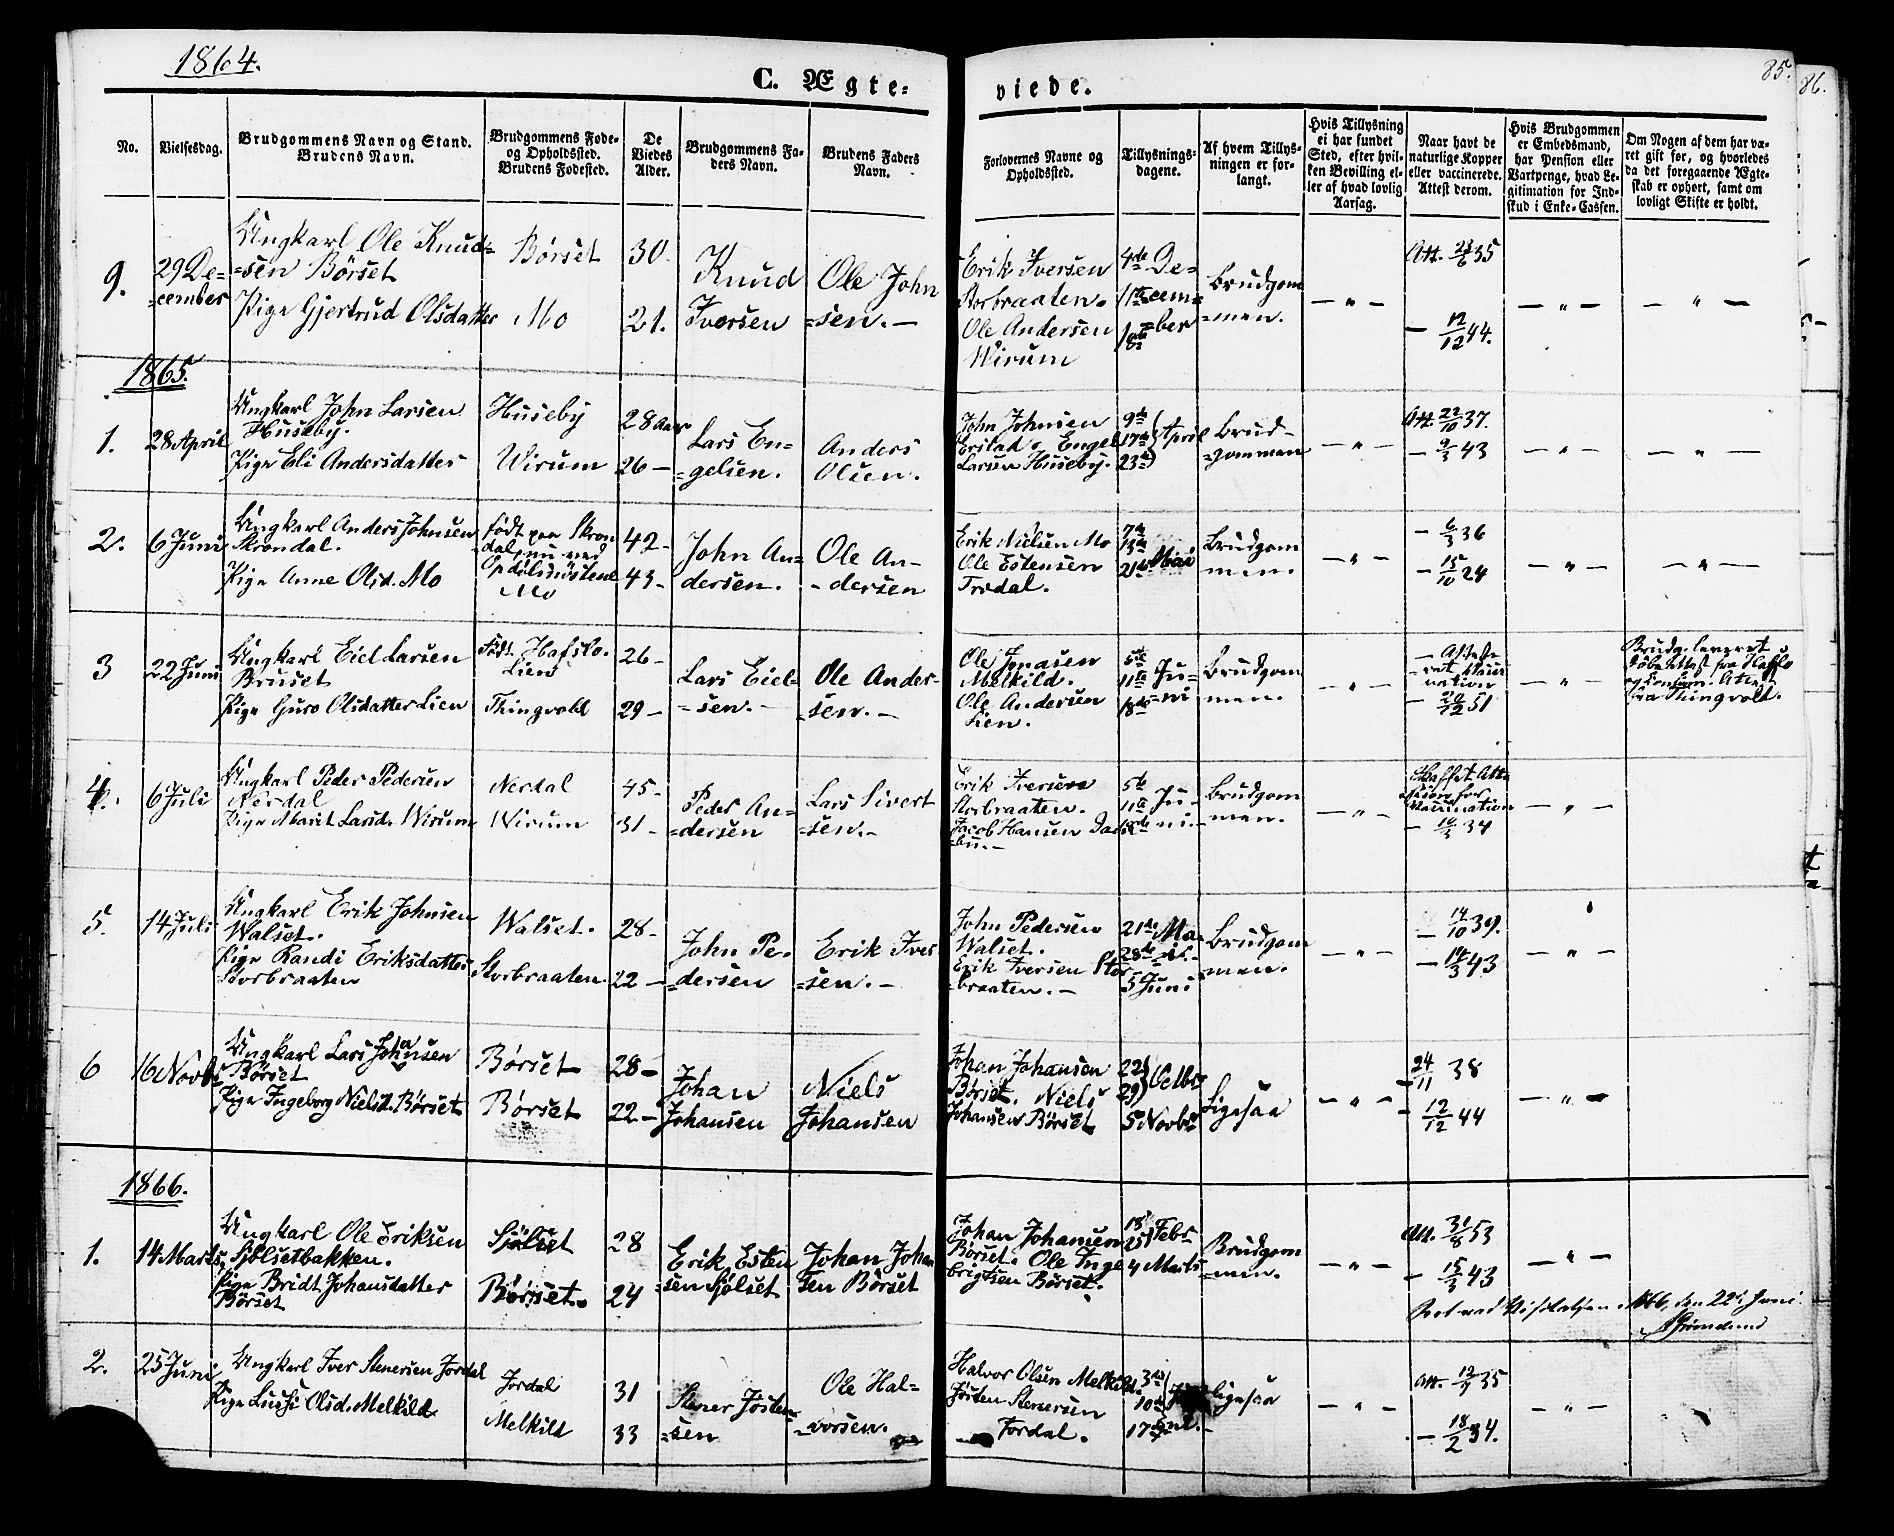 1864.
C. Ægte-
viede.
85.
86.
No.
Vielsesdag.
Brudgommens Navn og Stand.
Brudens Navn.
Brudgommens Føde-
og Opholdssted.
Brudens Fødested.
De
Viedes
Alder.
Brudgommens Fa-
ders Navn.
Brudens Faders
Navn.
Forlovernes Navne og
Opholdssted.
Tillysnings-
dagene.
Af hvem Tillys-
ningen er for-
langt.
Hvis Tillysning
ei har fundet
Sted, efter hvil-
ken Bevilling el-
ler af hvad lovlig
Aarsag.
Naar havt de
naturlige Kopper
eller vaccinerede.
Attest derom.
Hvis Brudgommen
er Embedsmand,
har Pension eller
Vartpenge, hvad Le-
gitimation for Ind-
skud i Enke-Cassen.
Om Nogen af dem har væ-
ret gift før, og hvorledes
da det foregaaende Ægte-
skab er ophørt, samt om
lovligt Skifte er holdt.
9.
29 De-
=cember
Ungkarl Ole Knud=
=sen Børset
Pige Gjertrud Olsdatter
Børset
Mo
30-
21.
Knud
Iversen
Ole John
=sen. -
Erik Iversen
Storbraaten.
Ole Andersen
Wirum
4de De=
11te cem=
18de =ber
Brudgom
=men.
- " -
Att. 23/6 35
- 12/12 44.
- " -
- " -
1865.
1.
28 April
Ungkarl John Larsen
Huseby.
Pige Eli Andersdatter
Huseby
Wirum
28 Aar
26 -
Lars En-
=gelsen.
Anders
Olsen.
John Johnsen
Engel
Larsen Huseby.
9de
17de April
23de
Brud-
=gommen
- " -
Att. 22/10 37.
- 9/3 43
- " -
- " -
2.
6 Juni
Ungkarl Anders Johnsen
Skrøndal.
Pige Anne Olsd. Mo
født paa Skrøn
dal, nu ved
Opdølsnøstene
Mo
42-
43-
John An=
dersen.
Ole An-
- dersen
Erik Nielsen Mo
Ole Estensen
Trødal.
7de
21de Mai
Brudgom
men.
- " -
- 6/3 36
- 15/10 24
- " -
- " -
3
22 Juni
Ungkarl Eiel Larsen
Bruset
Pige Guro Olsdatter Lien
født. Hafslo.
Lien
Thingvold
26-
29-
Lars Eiel=
=sen. -
Ole Ander-
=sen. -
Ole Jonasen
Melkild.
Ole Andersen
Lien.
5te
11te Ju-
18de =ni
Brudgom
men.
- " -
- 20/12 51
- " -
Brudg. leveret
Døbe Attest fra Hafslo
fra Thingvold.
4.
6 Juli
Ungkarl Peder Pedersen
Nerdal
Pige Marit Larsd. Wirum
Nerdal
Wirum
45-
31-
Peder An=
=dersen
Lars Sivert
=sen.-
Erik Iversen
Storbraaten.
Jacob Hansen
5te
11te Ju-
18de ni.-
Brudgom
men.
- " -
Skaffet Att.
Vaccination
- 10/3 34
- " -
5.
14 Juli
Ungkarl Erik Johnsen
Walset.
Pige Randi Eriksdatter
Storbraaten
Walset.
Storbraaten.
28-
22-
John Pe-
=dersen
Erik Iver
=sen. -
John Pedersen
Walset.
Erik Iversen Stor
=braaten. -
21de Ma-
28de =i.-
5 Juni
Brudgom
=men.
- " -
- 14/10 39.
- 14/3 43
- " -
6
16 Novbr
Ungkarl Lars Johansen
Børset
Pige Ingeborg Nielsd. Børset
Børset
Børset
28-
22-
Johan
Johansen
Niels
Johansen
Johan Johansen
Børset. Niels
Johansen Børset
22
29 Octbr
5 Novbr
Ligesaa
- " -
24/11 38
- 12/12 44
- " -
1866.
1.
14 Marts
Ungkarl Ole Eriksen
Sjølsetbakken.
Pige Bridt Johansdatter
Børset
Sjølset
Børset.
28
24
Erik Esten
sen Sjølset
Johan Johan
sen Børset
Johan Johansen
Børset. Ole Inge
brigtsen Børset.
18
25 Febr
4 Marts
Brudgom
=men.
- " -
Att. 31/8 53
- 15/3 43
- " -
1866, den 22de Juni
2.
25 Juni
Ungkarl Iver Stenersen Jordal
Pige Olsd. Melkild
Jordal
Melkild
31
33
Stener Josten-
=sen
Ole Hal=
=vorsen.
Halvor Olsen Melkild.
Josten Stenersen
Jordal.
3de
10de
17de
Ligesaa
- " -
Att. 12/9 35
- 18/2 34.
- " -